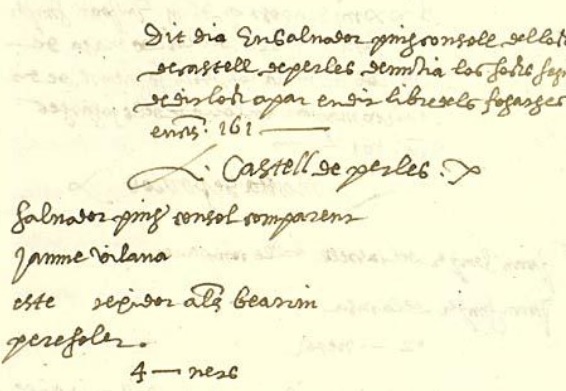 Dit dia En Salvador pins consell del loch
de castell de perles denuntia los fochs
de dit loch apar en dit libre dels fogatges
en cēs: 161 —
Castell de perles
Salvador pins consol comparent
Jaume vilana
este repidor als bearnin
pere soler
4 — ners